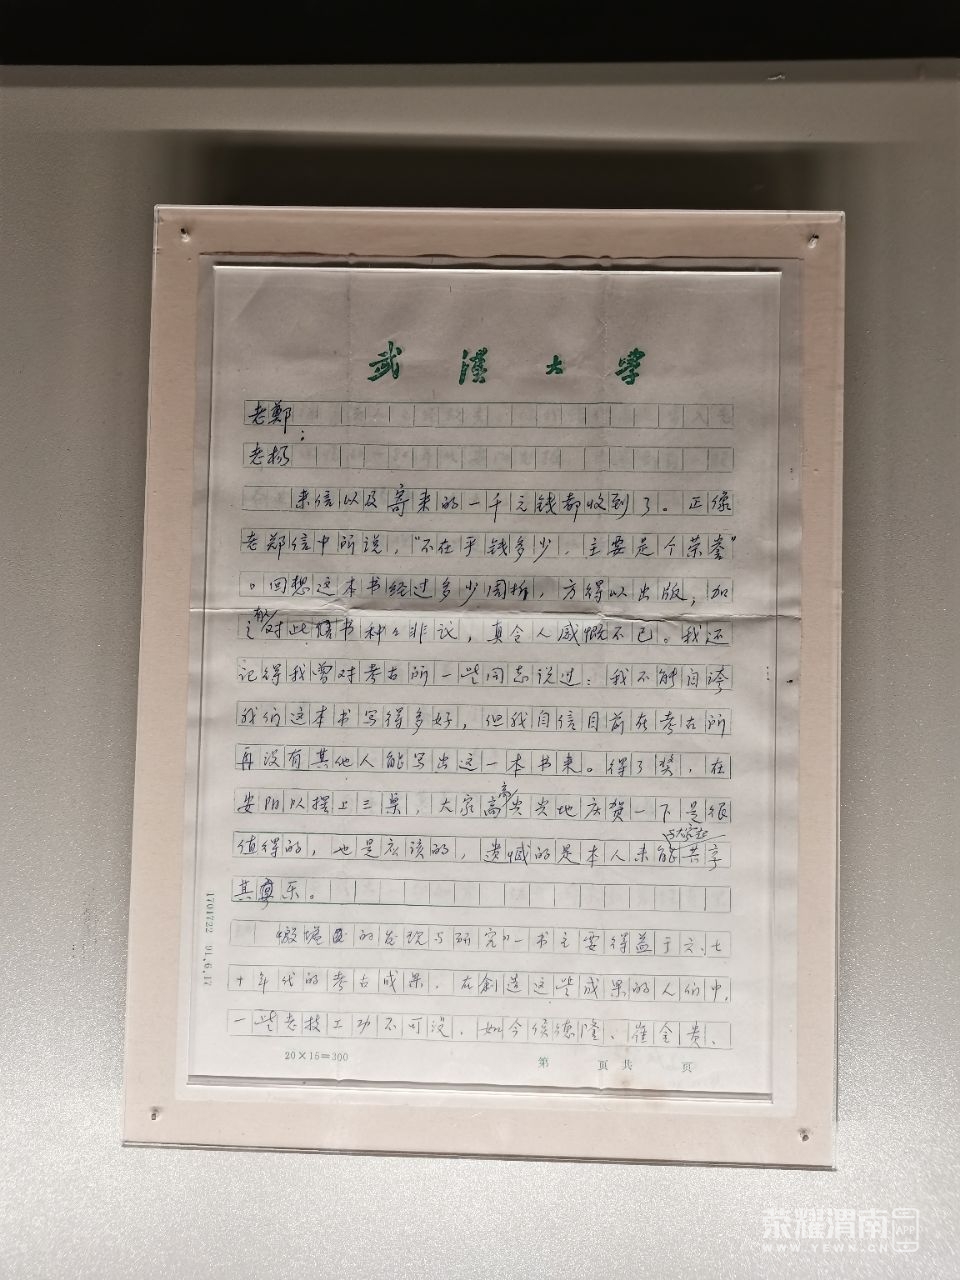 武漢大學
老鄭：
老杨
来信以及寄来的一千元钱都收到了。正像
老郑信中所说，“不在乎钱多少，主要是个荣誉”
。回想这本书经过多少周折，方得以出版，加
之有人对此书种种非议，真令人感慨不已。我还
记得我曾对考古所一些同志说过：我不能自誇
我们这本书写得多好，但我自信目前在考古所
再没有其他人能写出这一本书来。得了奖，在
安阳以摆上三桌，大家高高兴兴地庆贺一下是很
值得的，也是应该的，遗憾的是本人未能与大家共享
其乐。
“殷墟的发现与研究”一书主要得益于六、七
十年代的考古成果。在創造这些成果的人们中，
一些老技工功不可没，如今候德隆、崔金贵、
20×15=300
第 页共 页
1701722 91.6.17
荣耀渭南 APP
WWW.YEWN.CN